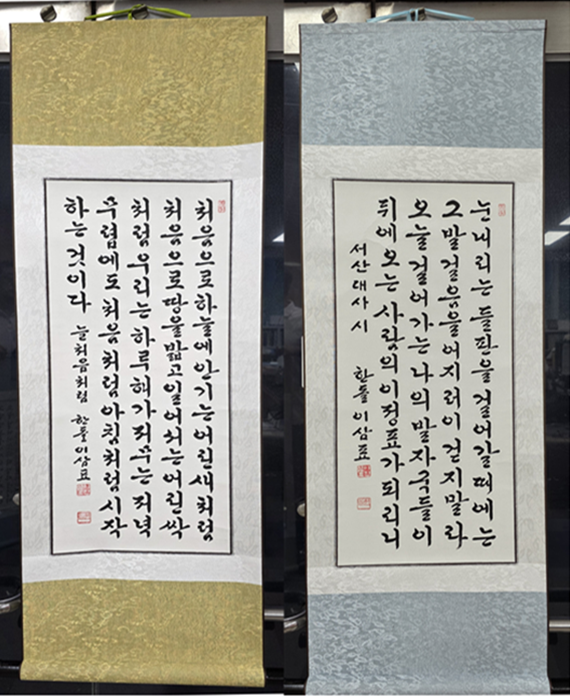 처음으로하늘에안기는어린새처럼
처음으로땅을밟고일어서는어린싹
처럼우리는하루해가저무는저녁
무렵에도처음처럼아침처럼시작
하는것이다 늘처음처럼 한돌이삼표
눈내리는들판을걸어갈때에는
그발걸음을어지러이걷지말라
오늘걸어가는나의발자국들이
뒤에오는사람의이정표가되리니
서산대사시 한돌이삼표